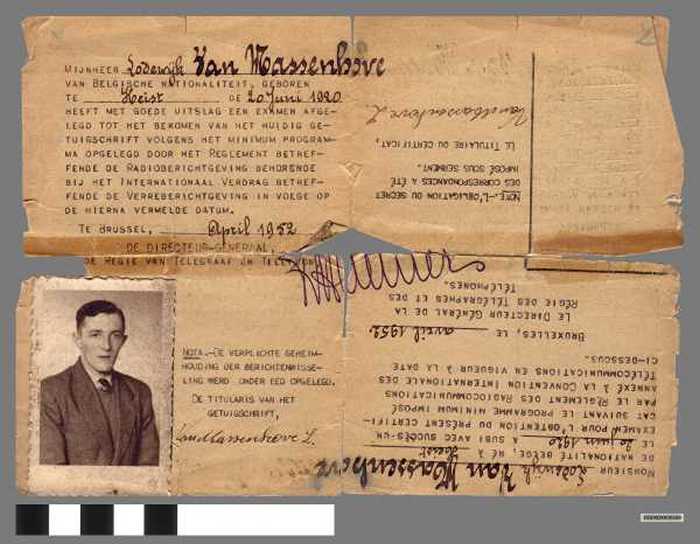 MIJNHEER Lodewijk Van Massenhove
VAN BELGISCHE NATIONALITEIT, GEBOREN
TE Heist DE 20 Juni 1920
HEEFT MET GOEDE UITSLAG EEN EXAMEN AFGE-
LEGD TOT HET BEKOMEN VAN HET HUIDIG GE-
TUIGSCHRIFT VOLGENS HET MINIMUM PROGRAM-
MA OPGELEGD DOOR HET REGLEMENT BETREF-
FENDE DE RADIOBERICHTGEVING BEHORENDE
BIJ HET INTERNATIONAAL VERDRAG BETREF-
FENDE DE VERREBERICHTGEVING IN VOEGE OP
DE HIERNA VERMELDE DATUM.
TE BRUSSEL, April 1952
DE DIRECTEUR-GENERAAL,
DE REGIE VAN TELEGRAAF EN TELEFOON
NOTA.-DE VERPLICHTE GEHEIM-
HOUDING DER BERICHTENWISSE-
LING WERD ONDER EED OPGELEGD.
DE TITULARIS VAN HET
GETUIGSCHRIFT,
VanMassenhove L.
MONSIEUR Lodewijk Van Massenhove
DE NATIONALITÉ BELGE, NÉ À Heist
LE 20 juin 1920 A SUBI AVEC SUCCÈS UN
EXAMEN POUR L'OBTENTION DU PRÉSENT CERTIFI-
CAT SUIVANT LE PROGRAMME MINIMUM IMPOSÉ
PAR LE RÈGLEMENT DES RADIOCOMMUNICATIONS
ANNEXÉ À LA CONVENTION INTERNATIONALE DES
TÉLÉCOMMUNICATIONS EN VIGUEUR À LA DATE
CI-DESSOUS.
BRUXELLES, LE avril 1952
LE DIRECTEUR GÉNÉRAL DE LA
RÉGIE DES TÉLÉGRAPHES ET DES
TÉLÉPHONES.
NOTE.-L'OBLIGATION DU SECRET
DES CORRESPONDANCES A ÉTÉ
IMPOSÉ SOUS SERMENT.
LE TITULAIRE DU CERTIFICAT,
VanMassenhove L.